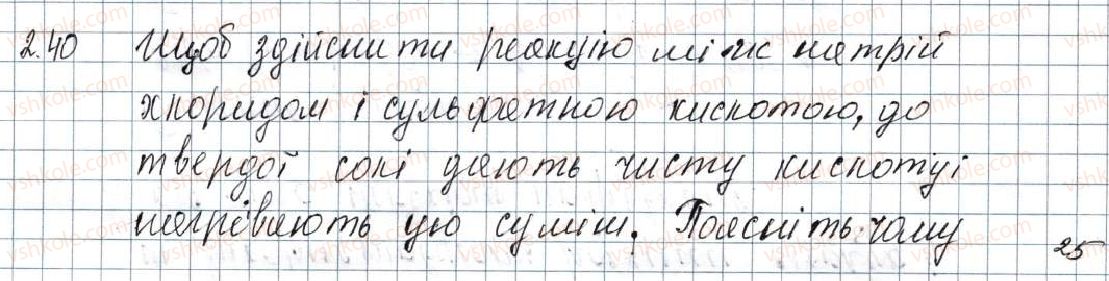 2.40 Щоб здійснити реакцію між натрій
хлоридом і сульфатною кислотою, до
твердої солі дають чисту кислоту і
нагрівають цю суміш. Поясніть чому
25